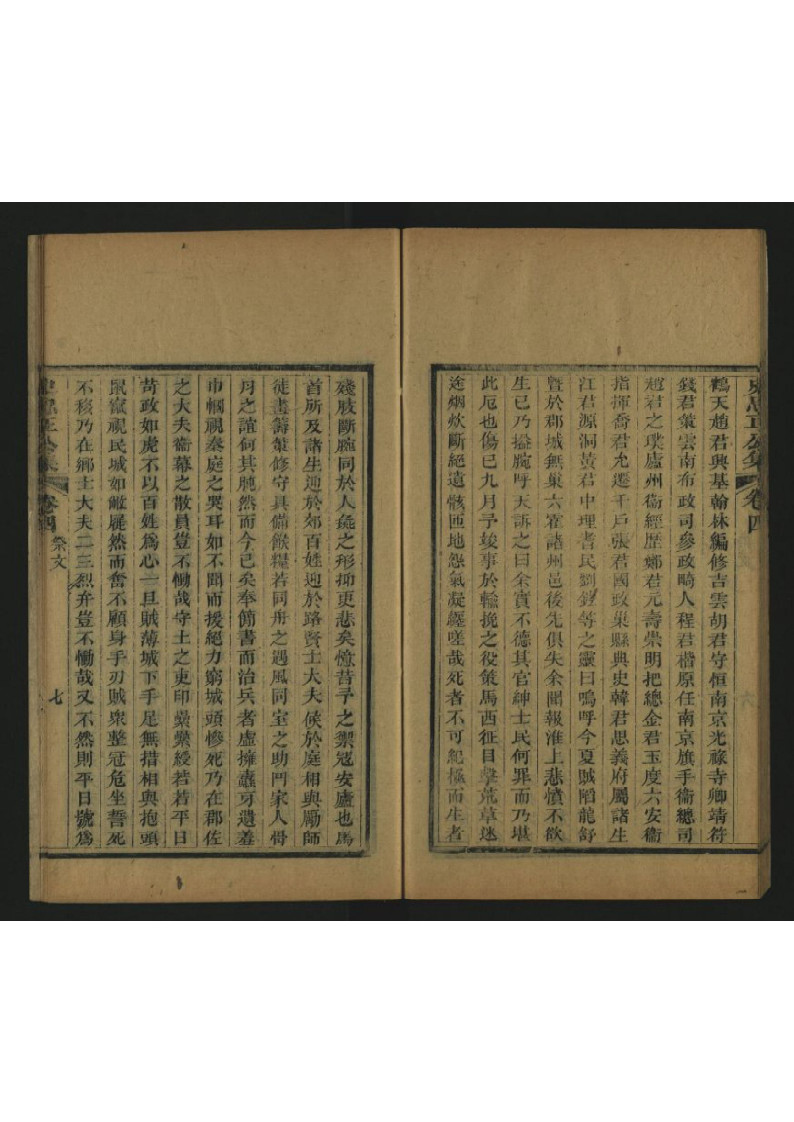 史忠正公集 卷四
鶴天趙君興基翰林編修吉雲胡君守恒南京光祿寺卿靖符
錢君策雲南布政司參政畸人程君楷原任南京旗手衞總司
趙君之璞廬州衞經歷鄭君元壽崇明把總金君玉度六安衞
指揮喬君允遷千戶張君國政巢縣典史韓君思義府屬諸生
江君源洞黃君中理耆民劉鐙等之靈曰嗚呼今夏賊陷龍舒
曁於郡城無巢六霍諸州邑後先俱失余聞報淮上悲憤不欲
生已乃搤腕呼天訴之曰余實不德其官紳士民何罪而乃堪
此厄也傷已九月予竣事於輸挽之役策馬西征目擊荒草迷
途烟炊斷絕遺骸匝地怨氣凝纒嗟哉死者不可紀極而生者
殘肢斷腕同於人彘之形抑更悲矣憶昔予之禦寇安廬也馬
首所及諸生迎於郊百姓迎於路賢士大夫候於庭相與勵師
徒畫籌策修守具備餱糧若同舟之遇風同室之助鬥家人骨
月之誼何其肫然而今已矣奉簡書而治兵者虛擁蠹牙遺羞
巾幗視秦庭之哭耳如不聞而援絕力窮城頭慘死乃在郡佐
之大夫衞幕之散員豈不慟哉守土之吏印纍纍綬若若平日
苛政如虎不以百姓爲心一旦賊薄城下手足無措相與抱頭
鼠竄視民城如敝屣然而奮不顧身手刃賊衆整冠危坐誓死
不移乃在鄉士大夫二三烈弁豈不慟哉又不然則平日號爲
史忠正公集 卷四 祭文 七